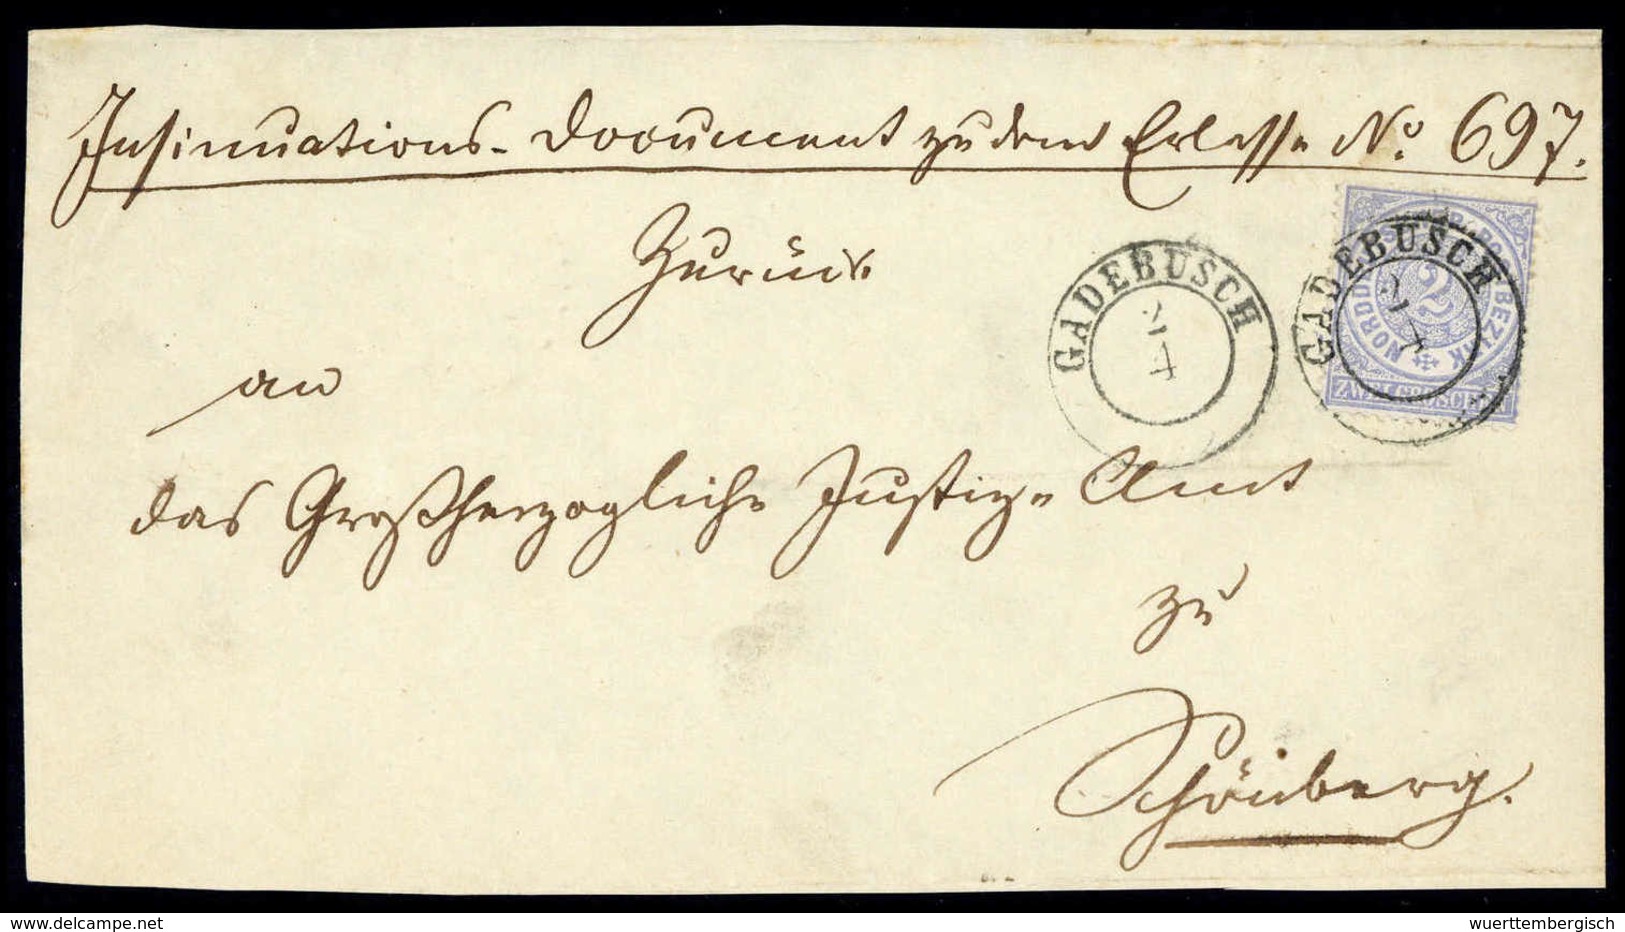 Insinuations-Document zu dem Erlasse No. 697.
Zurück
GADEBUSCH
2
4
GADEBUSCH
2
4
NORDD. POSTBEZIRK
2
ZWEI GROSCHEN
an
das Großherzogliche Justiz-Amt
zu
Schönberg.
www.delcampe.net
wuerttembergisch